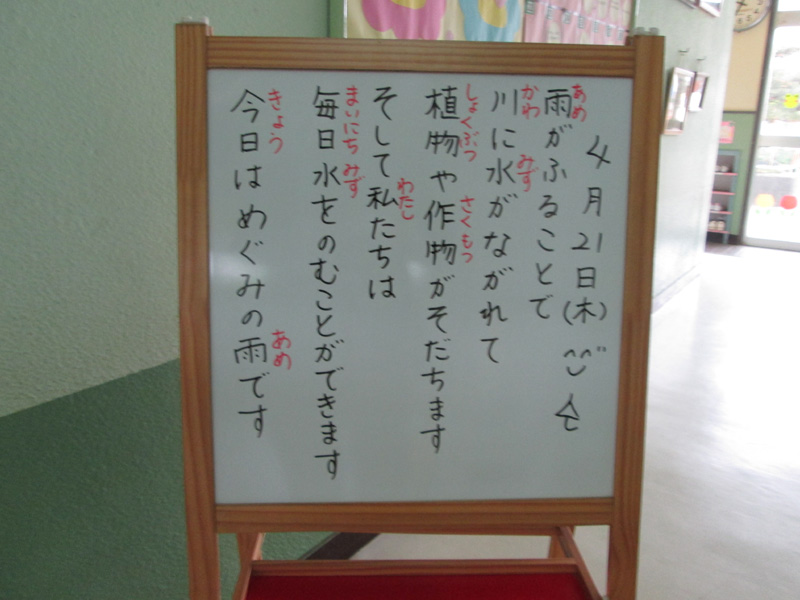 4月21日(木)
雨がふることで
川に水がながれて
植物や作物がそだちます
そして私たちは
毎日水をのむことができます
今日はめぐみの雨です
あめ
かわ
みず
しょくぶつ
さくもつ
わたし
まいにち
みず
きょう
あめ